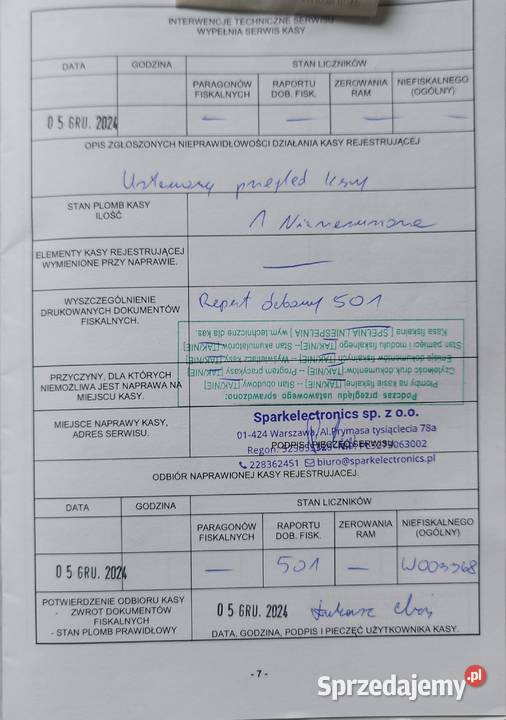 INTERWENCJE TECHNICZNE SERWISU
WYPEŁNIA SERWIS KASY
DATA
GODZINA
STAN LICZNIKÓW
PARAGONÓW FISKALNYCH
RAPORTU DOB. FISK.
ZEROWANIA RAM
NIEFISKALNEGO (OGÓLNY)
05 GRU. 2024 — — — —
OPIS ZGŁOSZONYCH NIEPRAWIDŁOWOŚCI DZIAŁANIA KASY REJESTRUJĄCEJ
Ustawowy przegląd kasy
STAN PLOMB KASY
ILOŚĆ
1 Nienaruszona
ELEMENTY KASY REJESTRUJĄCEJ
WYMIENIONE PRZY NAPRAWIE.
—
WYSZCZEGÓLNIENIE
DRUKOWANYCH DOKUMENTÓW
FISKALNYCH.
Raport dobowy 501
Podczas przeglądu ustawowego sprawdzono:
Plomby na kasie fiskalnej [TAK/NIE] -- Stan obudowy [TAK/NIE]
Czytelność druk. dokumentów [TAK/NIE] -- Program pracy kasy [TAK/NIE]
Emisja dokumentów fiskalnych [TAK/NIE] -- Wyświetlacz kasy [TAK/NIE]
Stan pamięci i moduł fiskalnego [TAK/NIE] -- Stan akumulatorów [TAK/NIE]
Kasa fiskalna [SPEŁNIA / NIESPEŁNIA] wym. techniczne dla kas.
PRZYCZYNY, DLA KTÓRYCH
NIEMOŻLIWA JEST NAPRAWA NA
MIEJSCU KASY.
MIEJSCE NAPRAWY KASY,
ADRES SERWISU.
Sparkelectronics sp. z o.o.
01-424 Warszawa, Al.Prymasa tysiąclecia 78a
PODPIS I PIECZĘĆ SERWISU
Regon:
228362451 biuro@sparkelectronics.pl
ODBIÓR NAPRAWIONEJ KASY REJESTRUJĄCEJ.
DATA
GODZINA
STAN LICZNIKÓW
PARAGONÓW FISKALNYCH
RAPORTU DOB. FISK.
ZEROWANIA RAM
NIEFISKALNEGO (OGÓLNY)
05 GRU. 2024 — 501 — W003368
POTWIERDZENIE ODBIORU KASY
- ZWROT DOKUMENTÓW
FISKALNYCH
- STAN PLOMB PRAWIDŁOWY
05 GRU. 2024 Łukasz
DATA, GODZINA, PODPIS I PIECZĘĆ UŻYTKOWNIKA KASY.
- 7 -
Sprzedajemy.pl